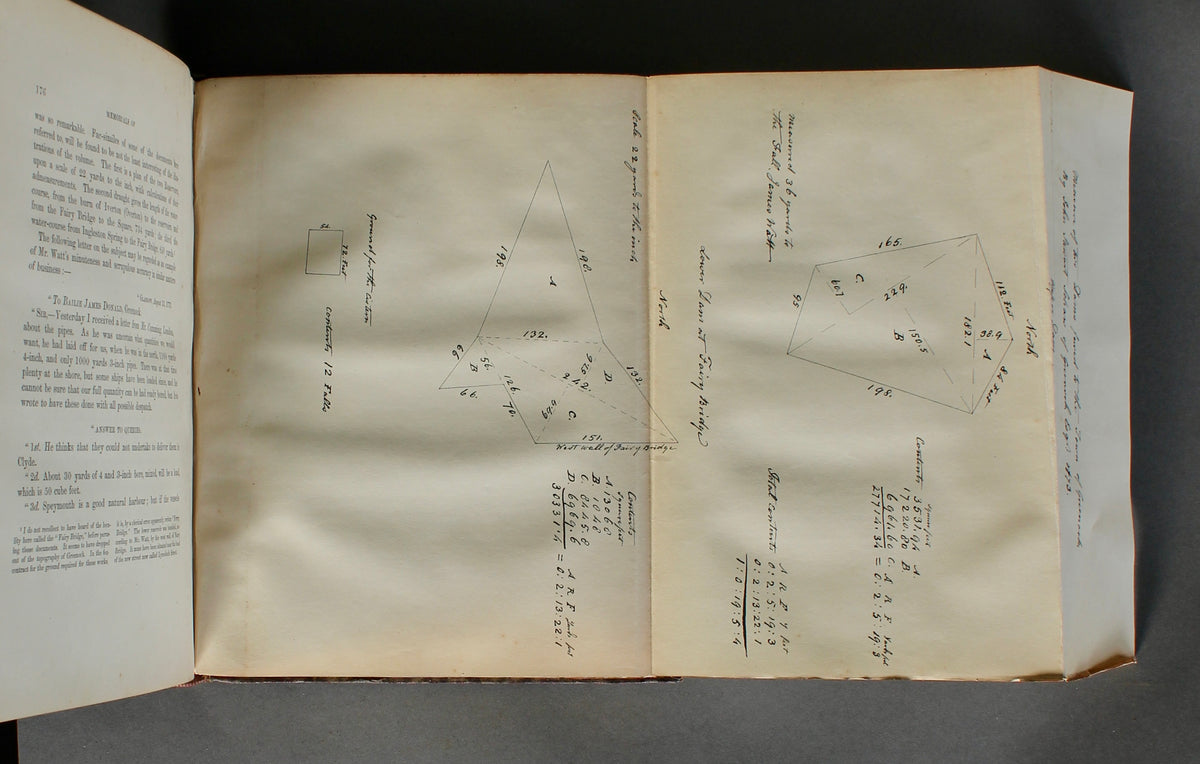 176
MEMORIALS OF
was so remarkable. Fac-similes of some of the documents here
referred to, will be found to be not the least interesting of the illus-
trations of the volume. The first is a plan of the two Reservoirs,
upon a scale of 22 yards to the inch, with calculations of their
admeasurements. The second draught gives the length of the water
course, from the burn of Iverton (Overton) to the reservoir, and
from the Fairy Bridge to the Square, 774 yards; the third the
water-course from Ingleston Spring to the Fairy Bridge,
The following letter on the subject may be regarded as an example
of Mr. Watt's minuteness and scrupulous accuracy in
of business:—
"To BAILIE JAMES DONALD, Greenock.
"SIR,—Yesterday I received a letter from Mr Cumming, London,
about the pipes. As he was uncertain what quantities we would
want, he had laid off for us, when he was in the north, 1100 yards
4-inch, and only 1000 yards 3-inch pipe. There was at that time
plenty at the shore, but some ships have been loaded since, and he
cannot be sure that our full quantity can be had ready bored, but has
wrote to have these done with all possible despatch.
"ANSWER TO QUERIES.
"1st. He thinks that they could not undertake to deliver them in
Clyde.
"2d. About 30 yards of 4 and 3-inch bore, mixed, will be a load,
which is 50 cube feet.
"3d. Speymouth is a good natural harbour; but if the vessels
"I do not recollect to have heard of the loca-
lity here called the "Fairy Bridge," before perus-
ing these documents. It seems to have dropped
out of the topography of Greenock. In the
contract for the ground required for these works
it is, by a clerical error apparently, "Ferry
Bridge." The lower reservoir was
cording to Mr. Watt, by the west wall of Fairy
Bridge. It must have been situated near the head
of the new street now called Lynedoch Street.
Scale 22 yards to the inch
198.
196.
A
132.
132.
66
B
56
66.
126
70.
D
92
242
C
151.
West wall of Fairy Bridge
Ground for the Cistern
72 Feet
Contents 12 Falls
Contents
Square feet
A 13068
B 1848
C 8445.8
D 6969.6
30331.4 = 0:2:13:22:1
A R F Yards feet
North
Lower Dam at Fairy Bridge
Measured 36 yards to
the Scale James Watt
165.
112 Feet
C.
607
229.
93
B
150.5
182.1
38.9
A
198.
North
Contents
Square feet
3531.94 A.
17220.80 B
6961.60 C.
27714.34 = 0:2:5:19:3
A R F Yards feet
Total contents
A R F Y feet
0:2:5:19:3
0:2:13:22:1
1:0:19:5:4